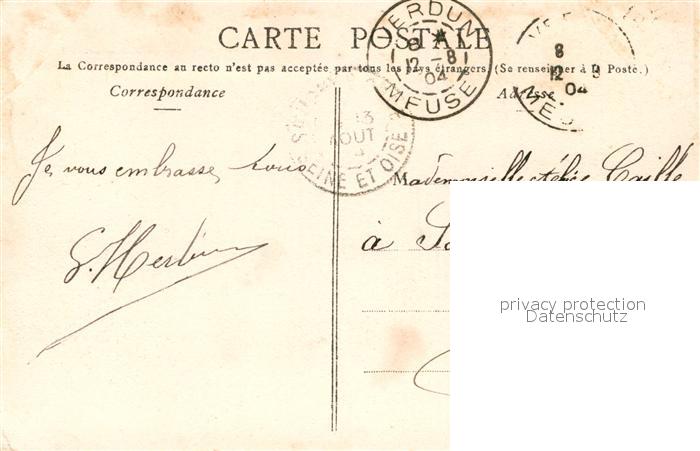 CARTE POSTALE
La Correspondance au recto n'est pas acceptée par tous les pays étrangers. (Se renseigner à la Poste.)
Correspondance
Adresse
VERDUN
8
12 -8
04
MEUSE
8
12
04
13
AOUT
SEINE ET OISE
Je vous embrasse tous
Mademoiselle
à
privacy protection
Datenschutz